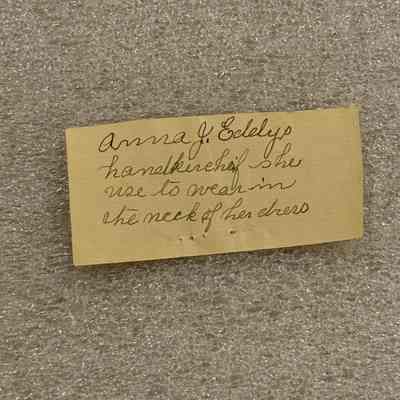 Anna J. Eddys
handkircheif she
use to wear in
the neck of her dress